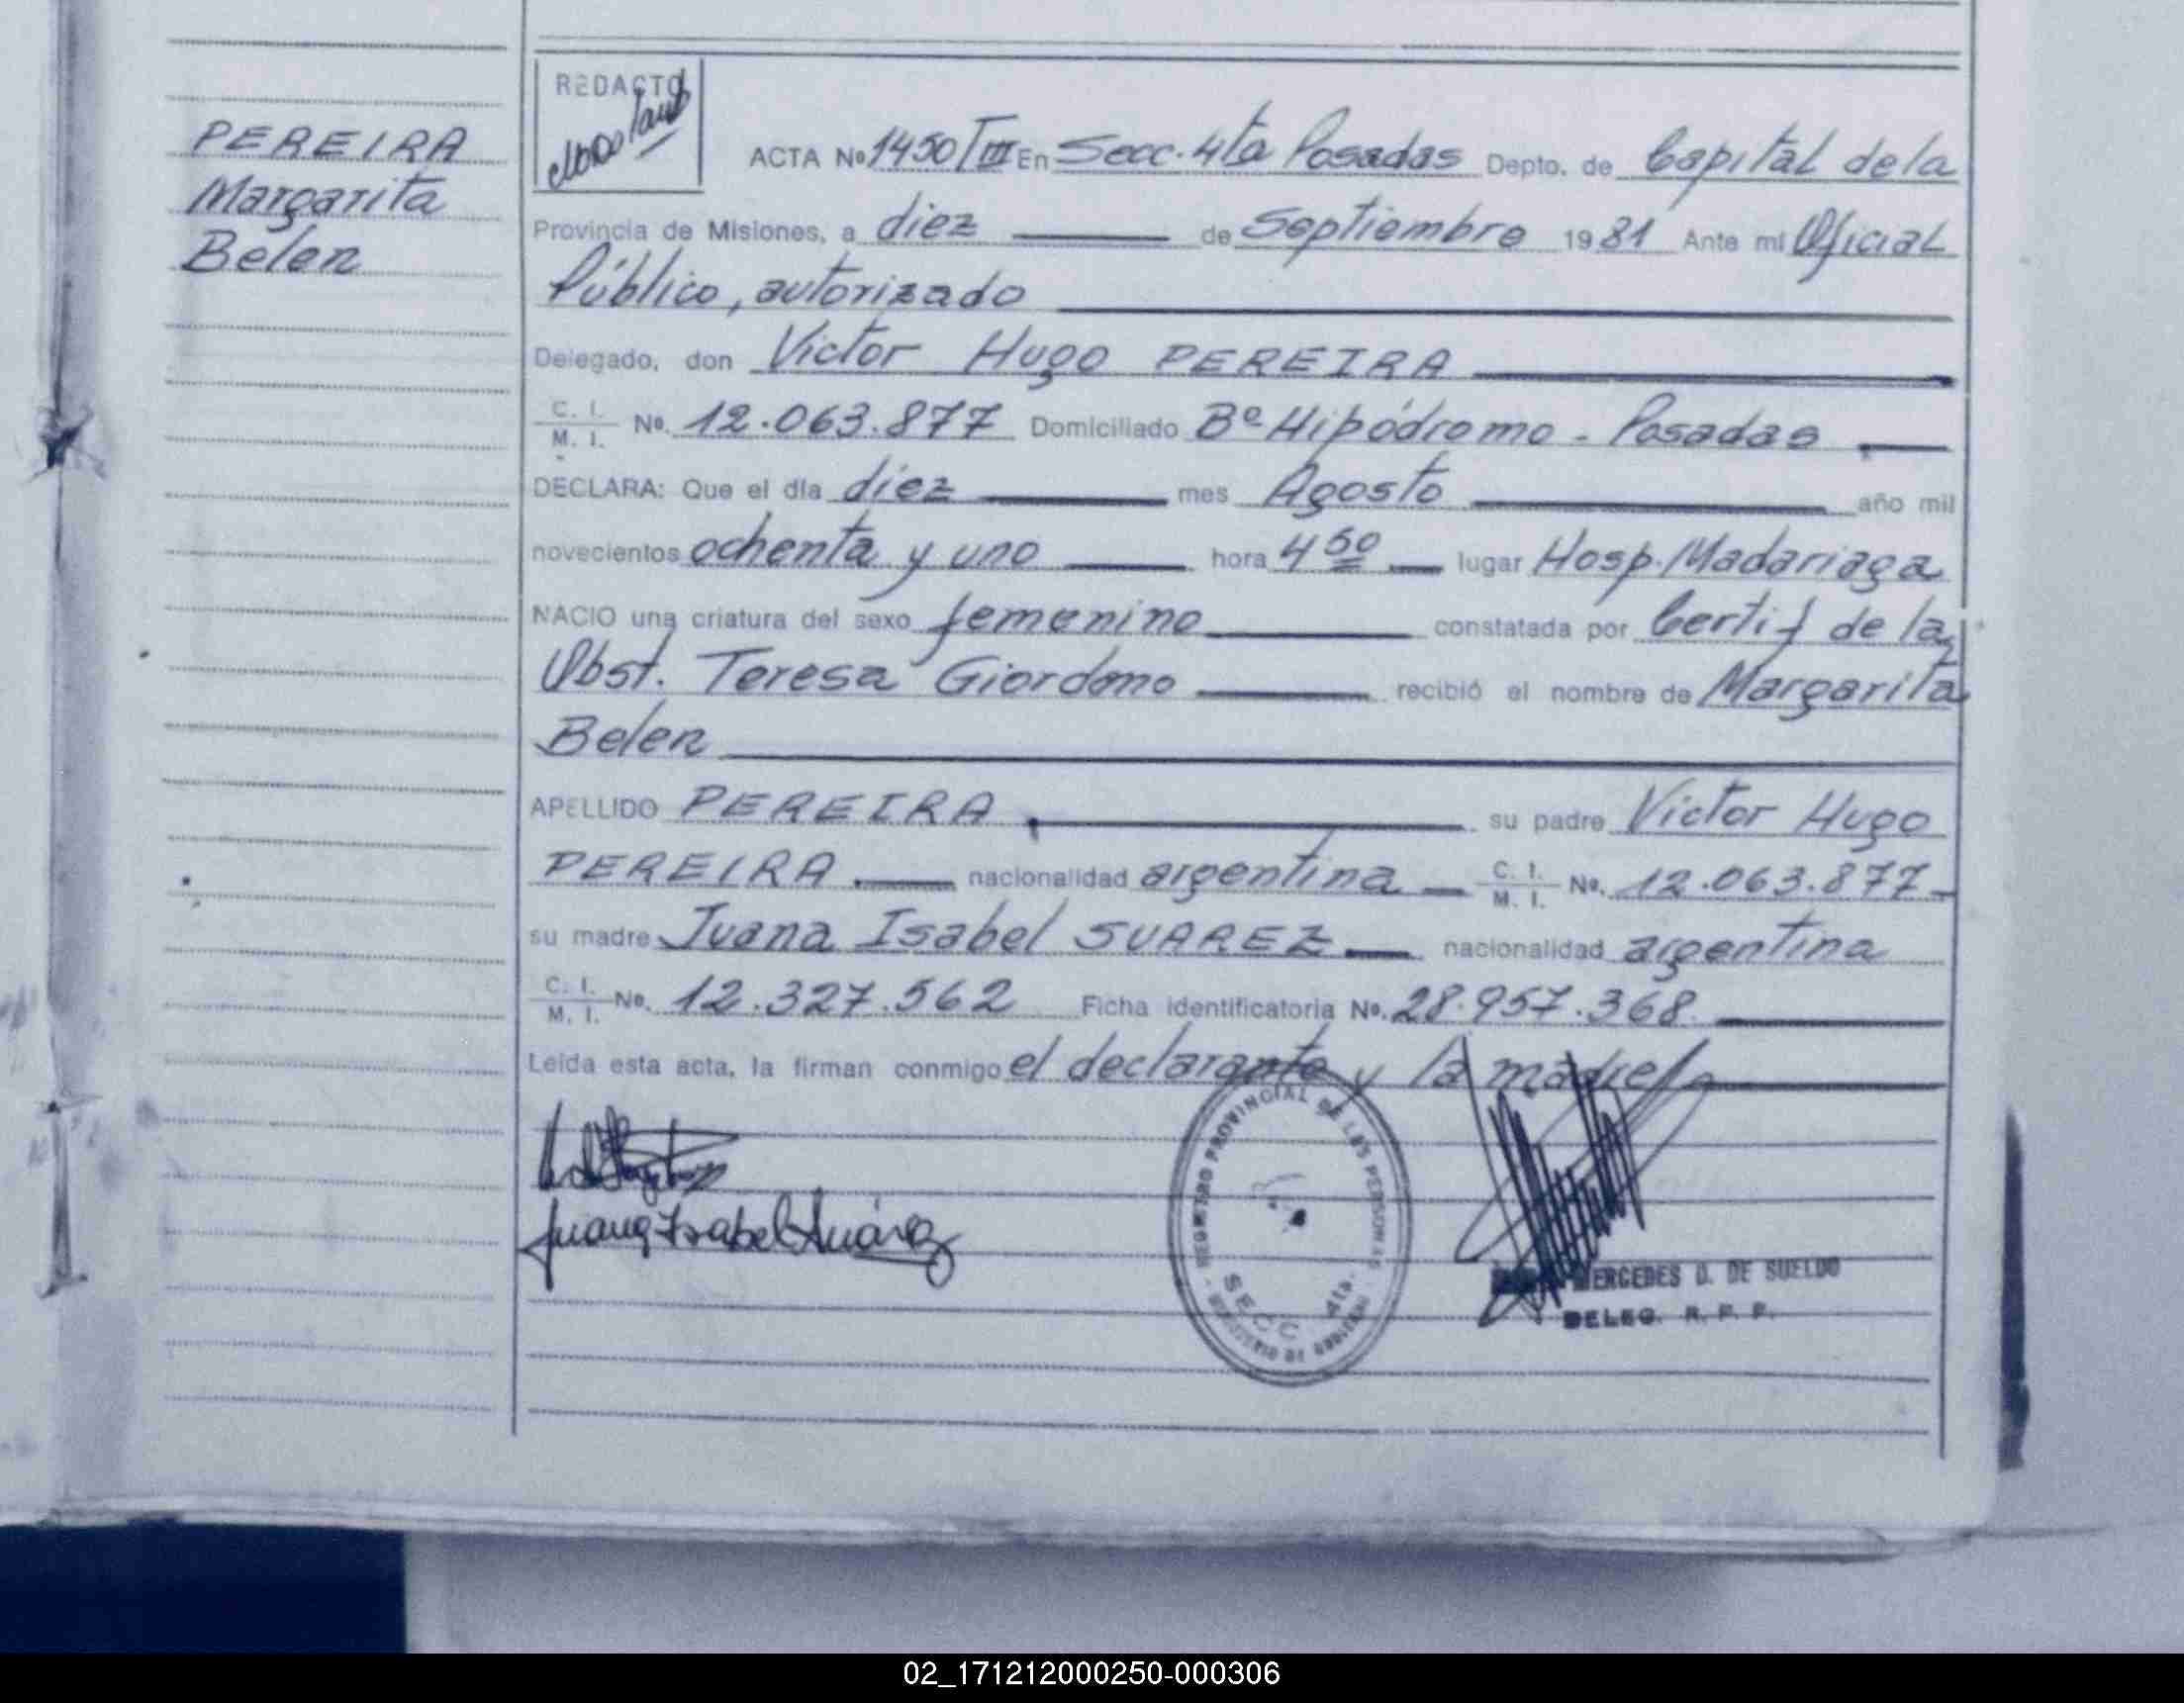 PEREIRA
Margarita
Belen
REDACTO
ACTA Nº 1450/TIII En Secc. 4ta Posadas Depto. de Capital de la
Provincia de Misiones, a diez de Septiembre 1981 Ante mi Oficial
Público, autorizado
Delegado, don Victor Hugo PEREIRA
C. I. M. I. Nº. 12.063.877 Domiciliado Bº Hipódromo - Posadas
DECLARA: Que el día diez mes Agosto año mil
novecientos ochenta y uno hora 4 50 lugar Hosp. Madariaga
NACIO una criatura del sexo femenino constatada por Certif de la
Obst. Teresa Giordano recibió el nombre de Margarita
Belen
APELLIDO PEREIRA su padre Victor Hugo
PEREIRA nacionalidad argentina C. I. M. I. Nº. 12.063.877
su madre Juana Isabel SUAREZ nacionalidad argentina
C. I. M. I. Nº. 12.327.562 Ficha identificatoria Nº. 28.957.368
Leída esta acta, la firman conmigo el declarante y la madre
Juana Isabel Suárez
REGISTRO PROVINCIAL DE LAS PERSONAS
SECC 4ta.
MERCEDES D. DE SUELDO
DELEG. R. P. P.
02_171212000250-000306